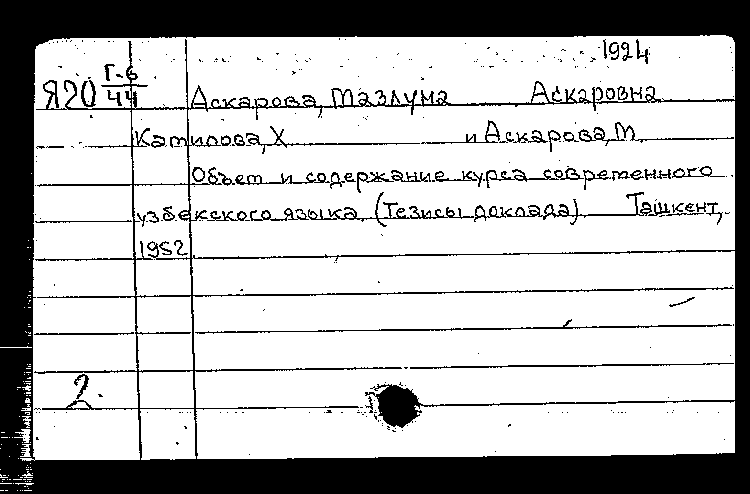 1924
Я20 Г-6/44 Аскарова, Мазлума Аскаровна
Камилова, Х и Аскарова, М.
Объет и содержание курса современного
узбекского языка. (Тезисы доклада). Ташкент,
1952
2.